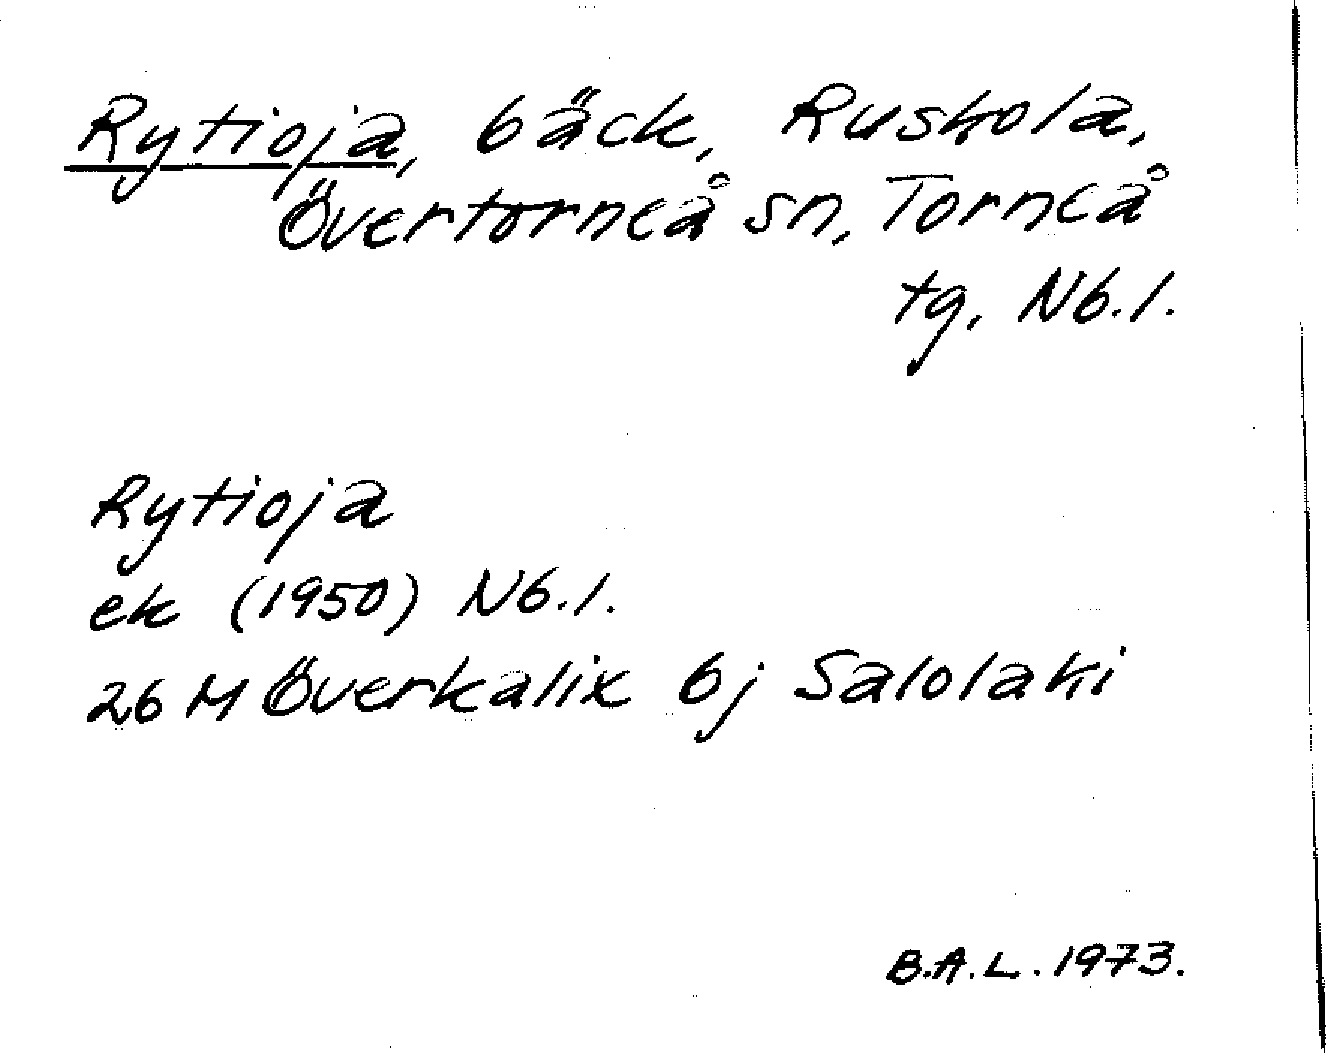 Rytioja, bäck, Ruskola,
Övertorneå sn, Torneå
tg, Nb.l.
Rytioja
ek (1950) Nb.l.
26 M Överkalix bj Salolaki
B.A.L. 1973.